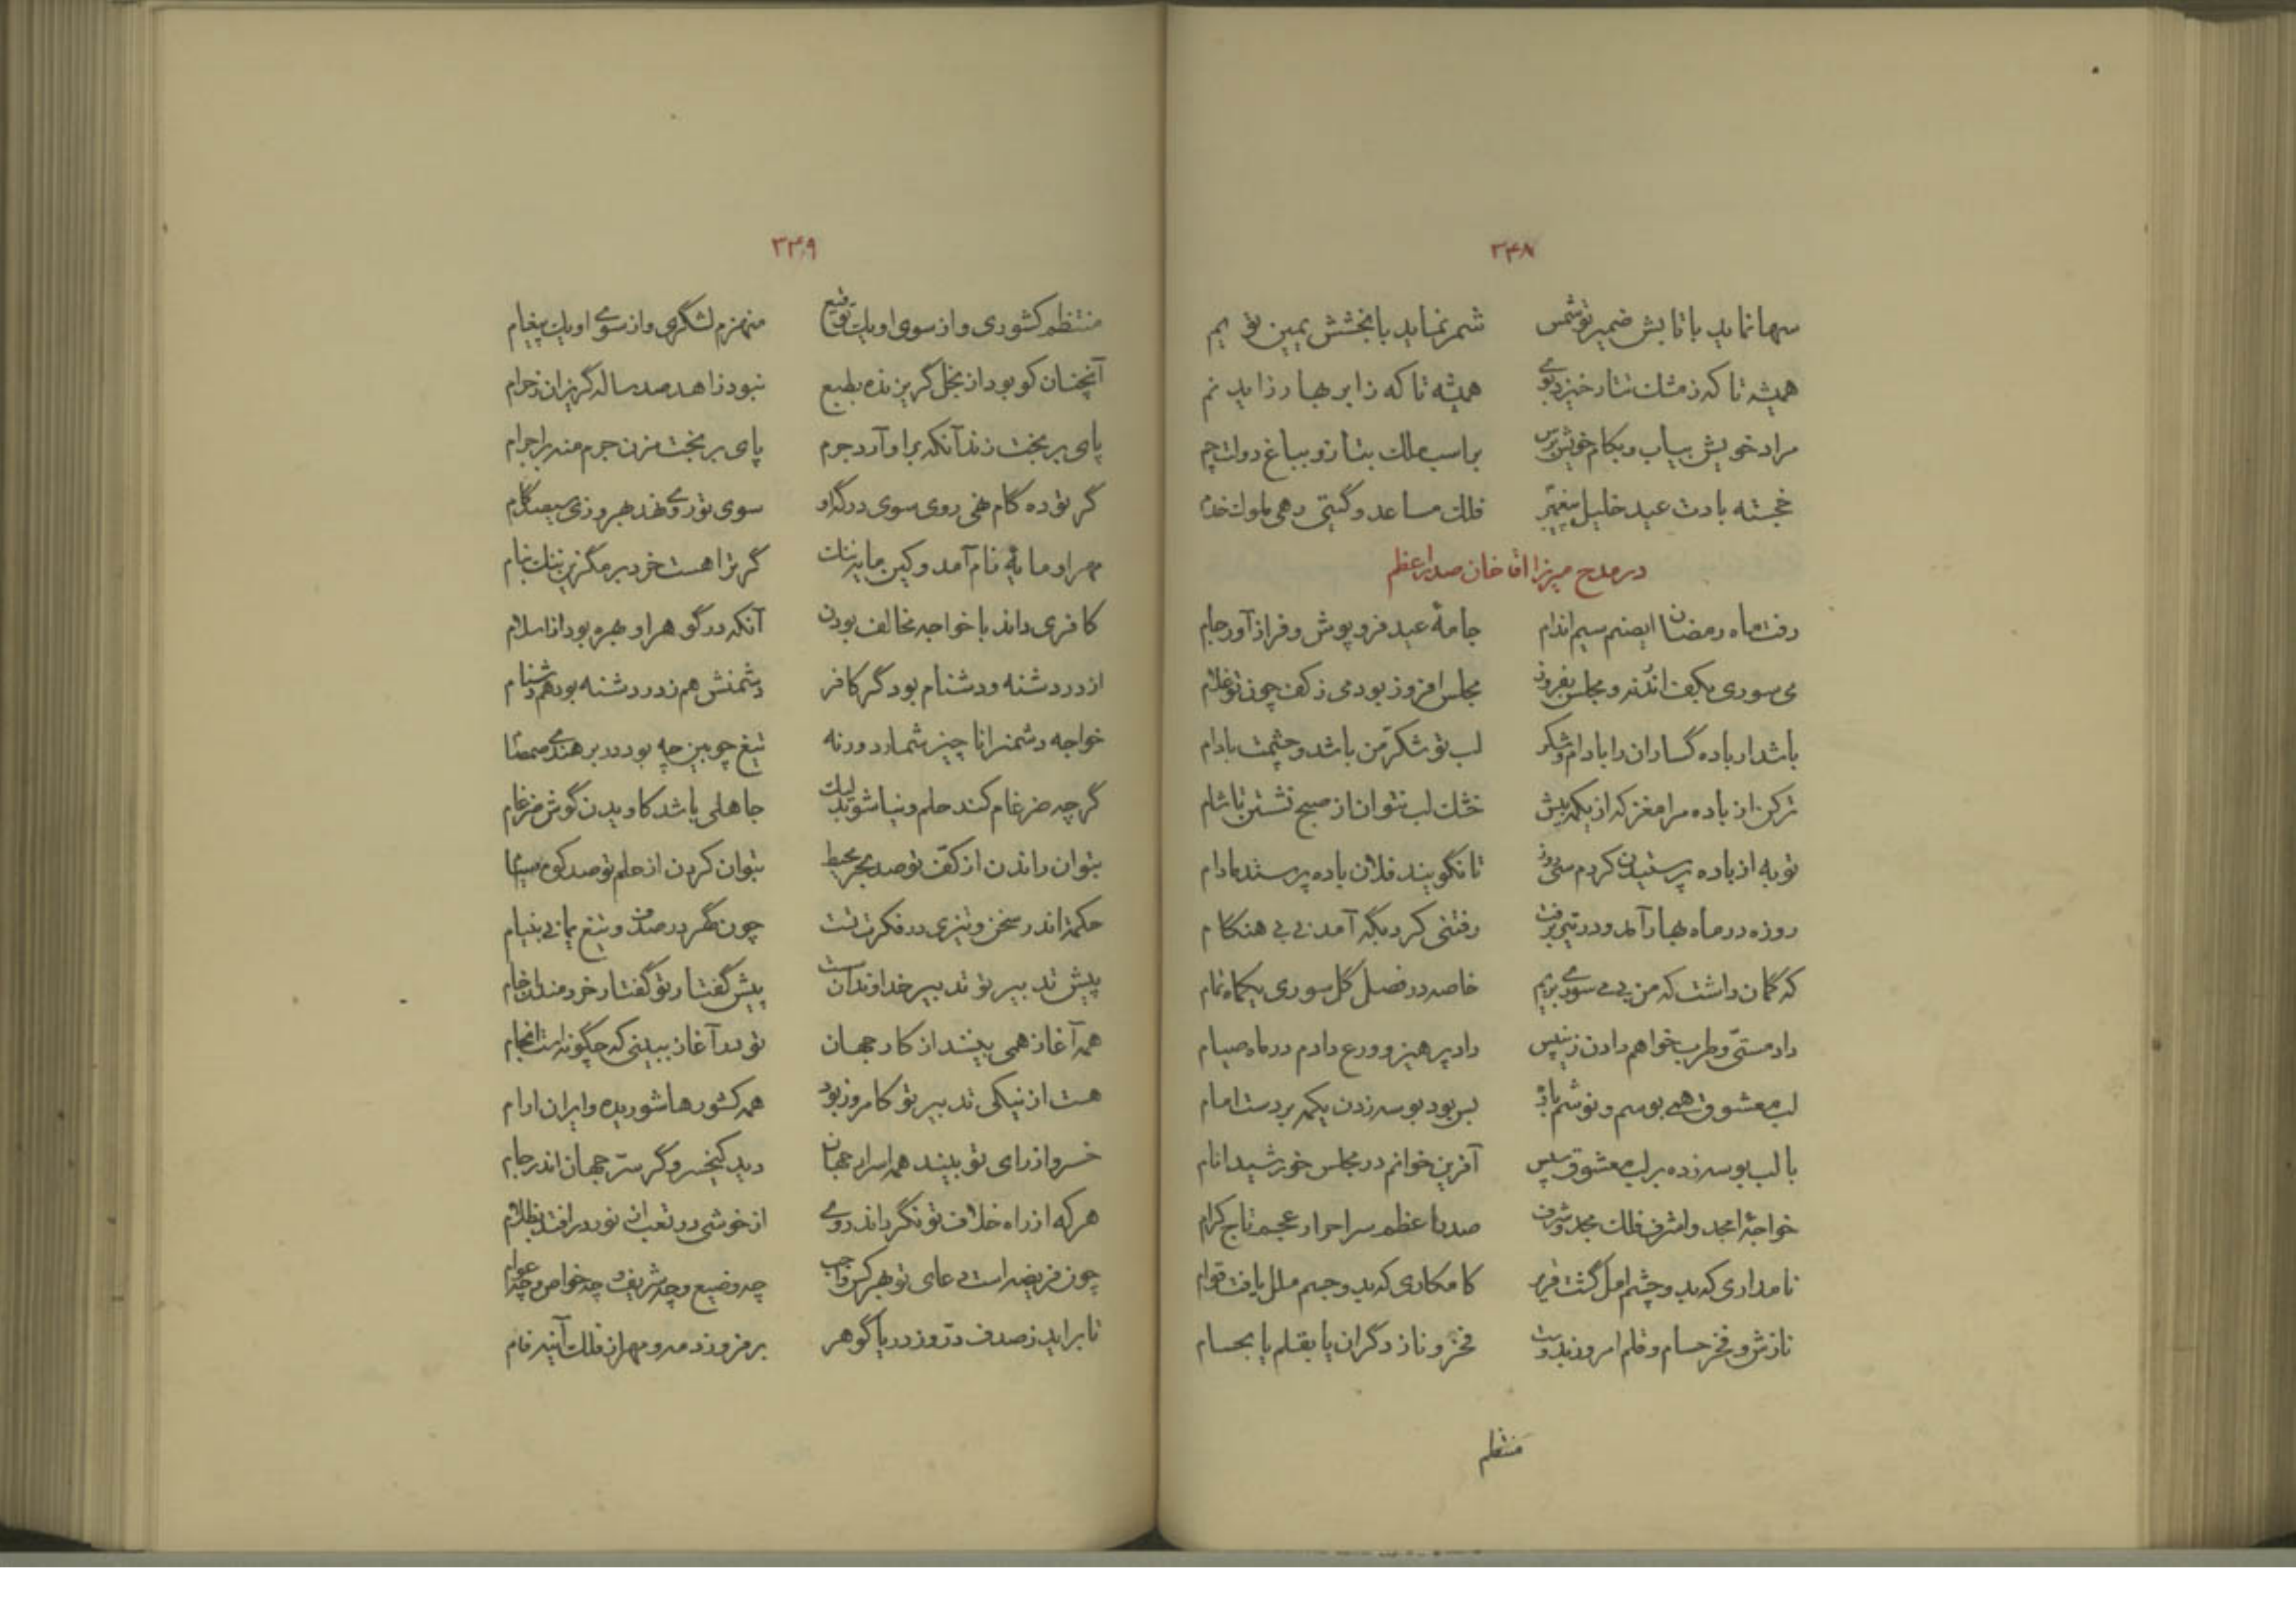 ۳۴۸
سها نماید با تابش ضمیر تو شمس شمر نماید با بخشش یمین تو یم
همیشه تا که ز مشک تتار خیزد بوی همیشه تا که ز ابر بهار زاید نم
مراد خویش بیاب و بکام خویش برس براسب ملک بتاز و بباغ دولت چم
خجسته بادت عید خلیل پیغمبر فلک مساعد و گیتی رهی ملوک خدم
در مدح میرزا اقا خان صدر اعظم
رفت ماه رمضان ایصنم سیم اندام جامهٔ عید فرو پوش و فراز آور جام
می سوری بکف اندر نه و مجلس بفروز مجلس افروز بود می ز کف چون تو غلام
باشد ار باده گساران را بادام و شکر لب تو شکر من باشد و چشمت بادام
تر کن از باده مرا مغز که از یکمه بیش خشک لب نتوان از صبح نشستن تا شام
توبه از باده پرستیدن کردم سی روز تا نگویند فلان باده پرستد مادام
روزه در ماه بهار آمد و در تیر برفت رفتنی کرد بگه آمدنی بی هنگام
که گمان داشت که من بی می سوری بزیم خاصه در فصل گل سوری یکماه تمام
داد مستی و طرب خواهم دادن زین پس داد پرهیز و ورع دادم در ماه صیام
لب معشوق همی بوسم و نوشم باده بس بود بوسه زدن یکمه بر دست امام
با لب بوسه زده بر لب معشوق سپس آفرین خوانم در مجلس خورشید انام
خواجهٔ امجد و اشرف فلک مجد و شرف صدر اعظم سر احرار عجم تاج کرام
نامداری که بدو چشم امل گشت قریر کامکاری که بدو جسم ملل یافت قوام
نازش و فخر حسام و قلم امروز بدوست فخر و ناز دگران یا بقلم یا بحسام
منتظم
۳۴۹
منتظم کشوری و از سوی او یک توقیع منهزم لشگری و از سوی او یک پیغام
آنچنان کو بود از بخل گریزنده بطبع نبود زاهد صد ساله گریزان ز حرام
پای بر بخت زند آنکه براو آرد جرم پای بر بخت مزن جرم منه بر اجرام
گر تو ده گام نهی روی سوی درگه او سوی تو روی نهد بهروزی سیصد گام
مهر او مایه نام آمد و کین مایه ننگ گر ترا هست خرد برمگزین ننگ بنام
کافری داند با خواجه مخالف بودن آنکه در گوهر او بهره بود از اسلام
از در دشنه و دشنام بود گر کافر دشمنش هم ز در دشنه بود هم دشنام
خواجه دشمن را ناچیز شمارد ورنه تیغ چوبین چه بود در بر هندی صمصام
گرچه ضرغام کند حلم و نیاشوبد لیک جاهلی باشد کاویدن گوش ضرغام
بتوان راندن از کف تو صد بحر محیط بتوان کردن از حلم تو صد کوه سیام
حکمت اندر سخن و تیزی در فکرت تست چون گهر در صدف و تیغ یمانی بنیام
پیش تدبیر تو تدبیر خداوندانست پیش گفتار تو گفتار خردمندان خام
همه آغاز همی بینند از کار جهان تو در آغاز ببینی که چگونه است انجام
هست از نیکی تدبیر تو کامروز بود همه کشورها شوریده و ایران ارام
خسرو از رای تو بیند همه اسرار جهان دید کیخسرو گر سر جهان اندر جام
هر که از راه خلاف تو نگرداند روی از خوشی در تعب از نور درافتد بظلام
چون فریضه است دعای تو بهر کس واجب چه وضیع و چه شریف و چه خواص و چه عوام
تا براید ز صدف در و ز دریا گوهر برفروزد مه و مهر از فلک آینه فام